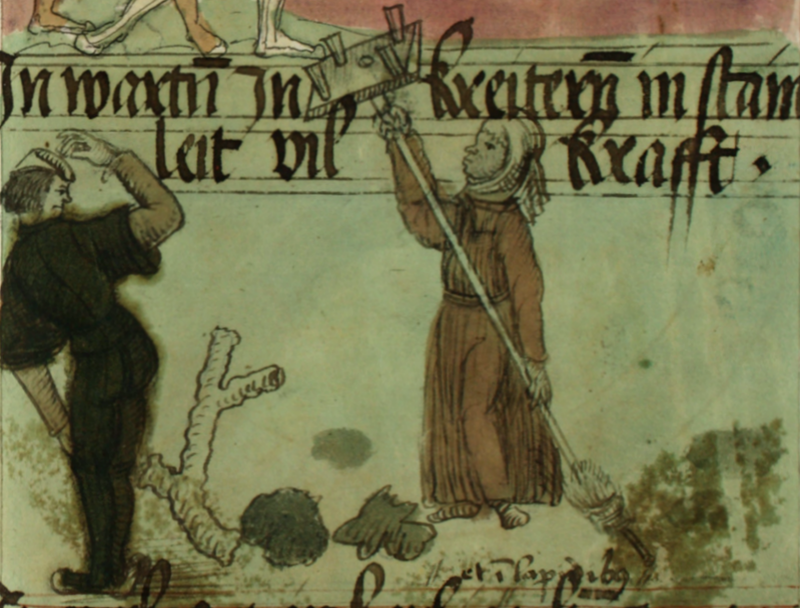 In wartū In kreiterῡ in stam
leit vil krafft .
et ī lapidibꝫ